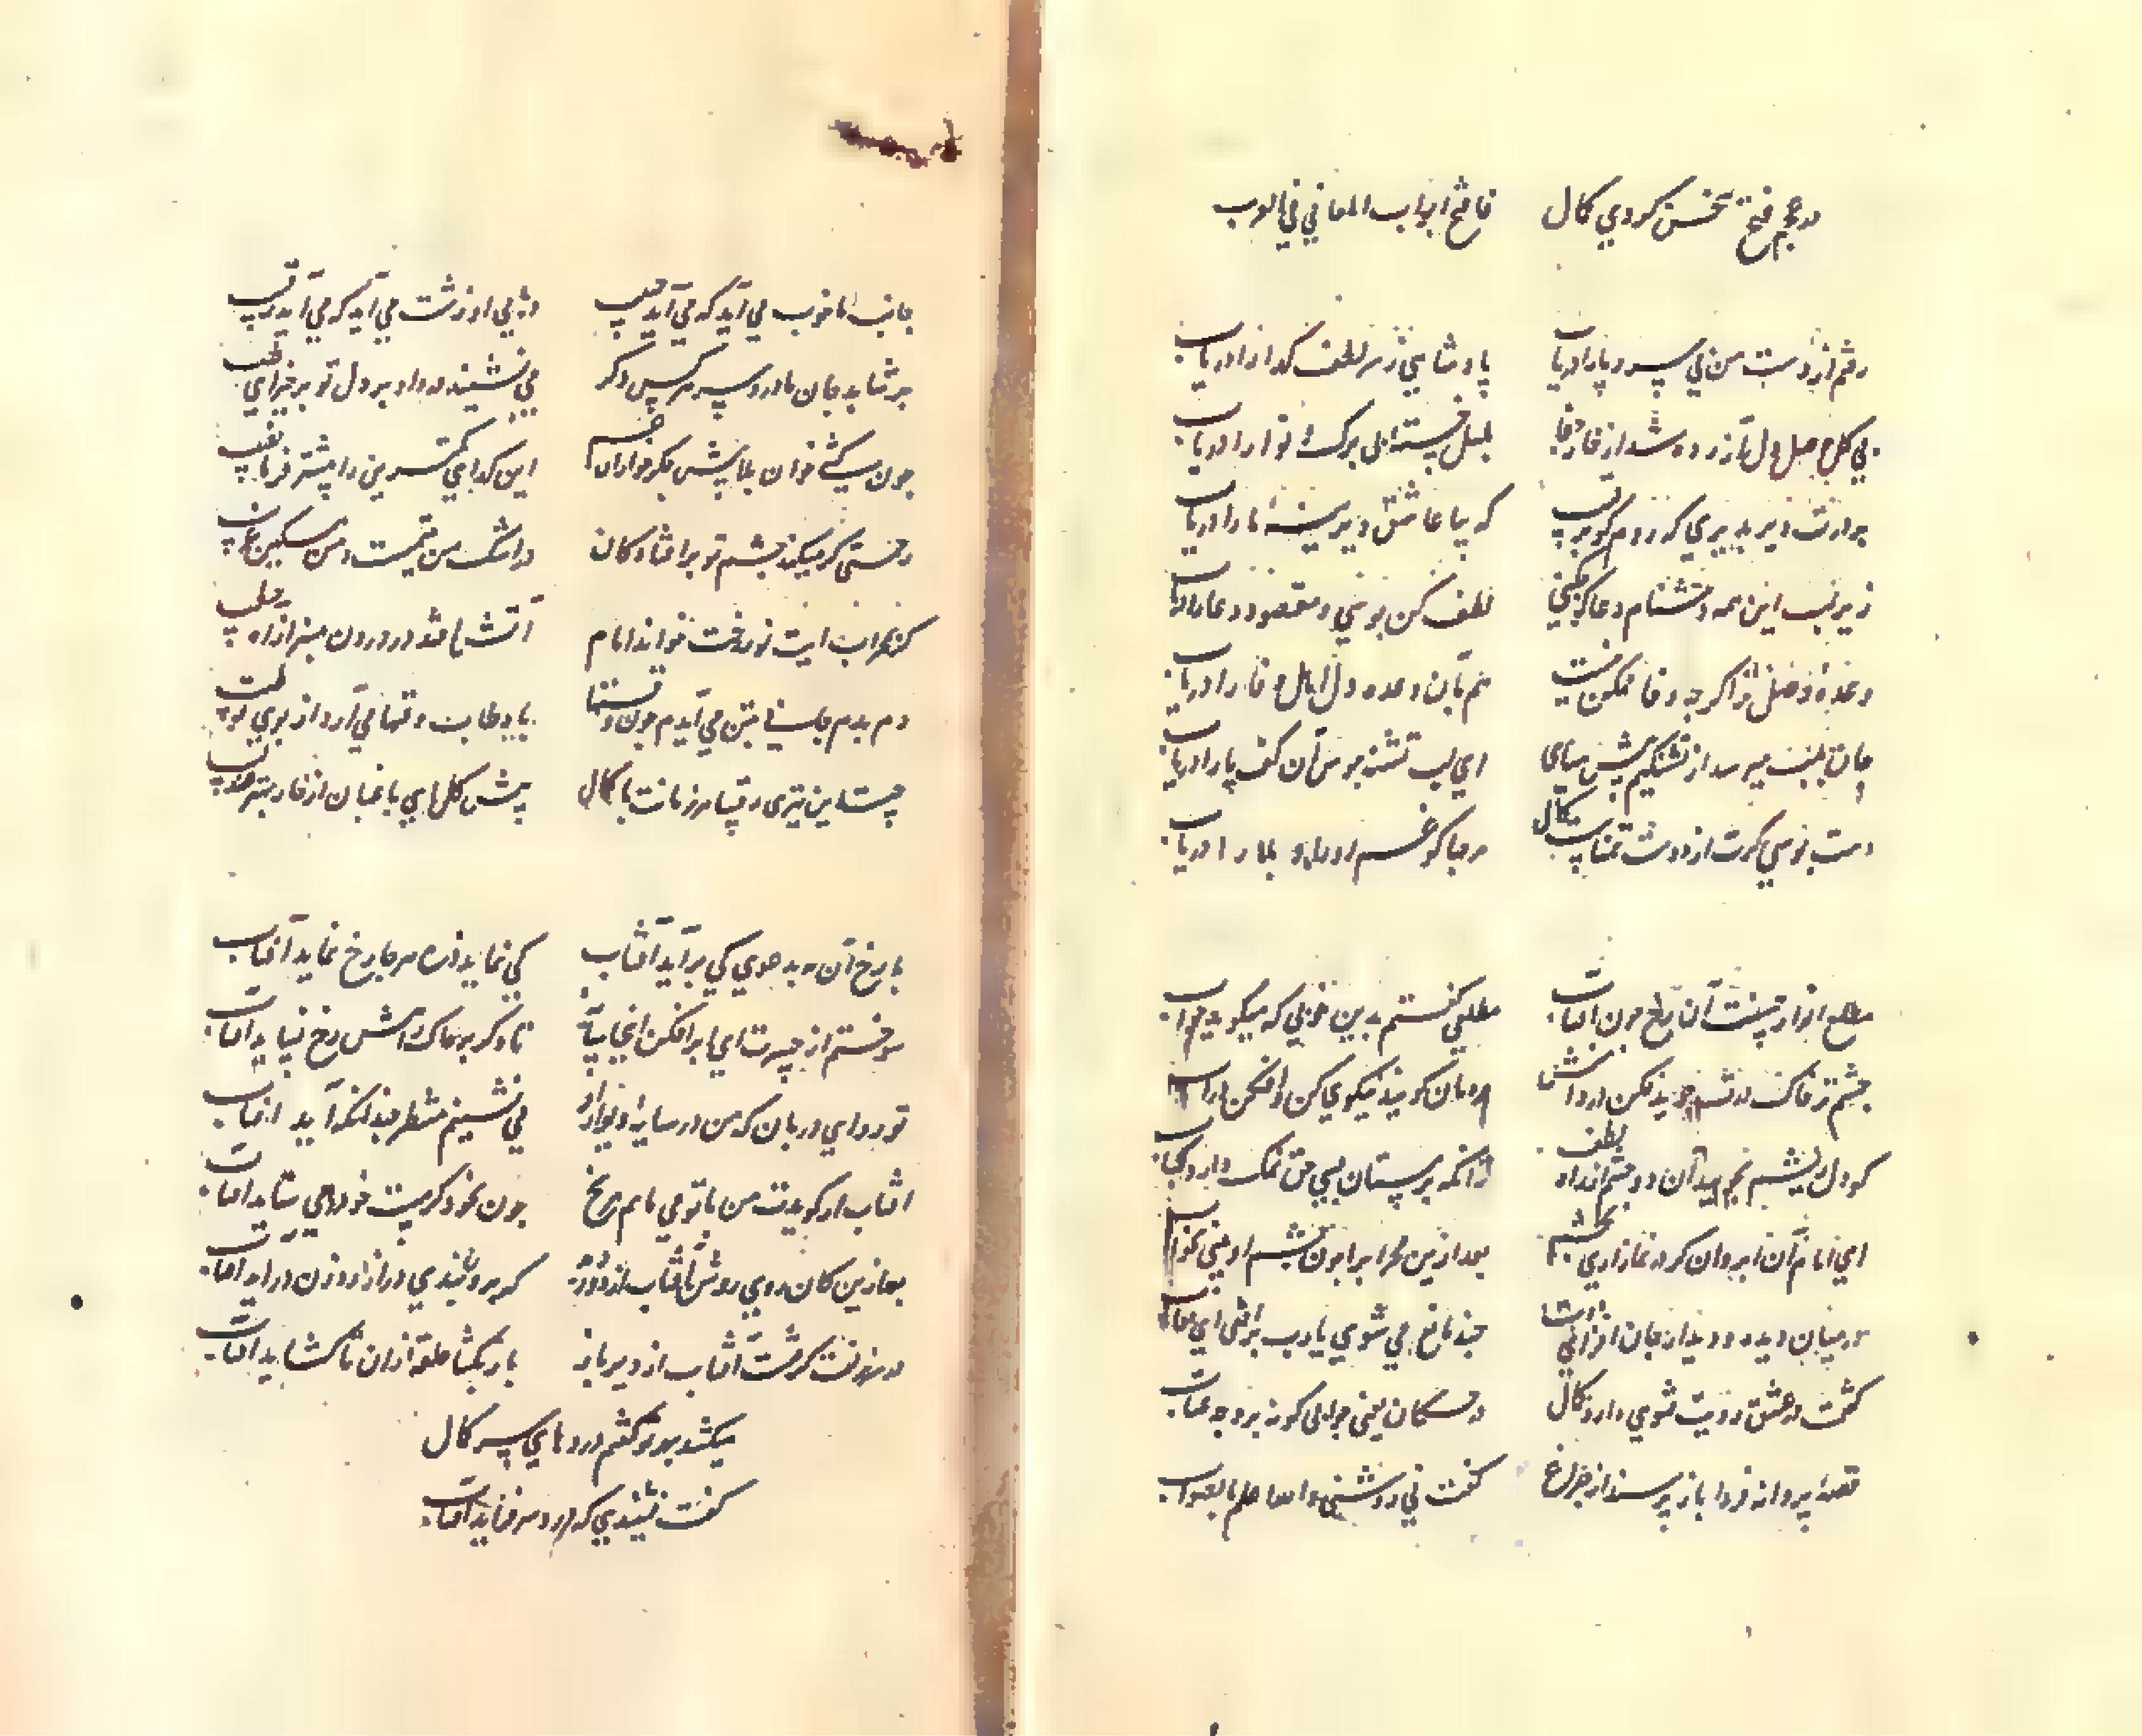 در عجم فتح سخن کردی کمال    فاتح ابواب المعانی فی العرب
رفتم از دست من بی سر و پا را دریاب    پادشاهی ز سر لطف گدا را دریاب
بی گل وصل دل آزرده شد از خار جفا    بلبل خسته بی برگ و نوا را دریاب
بر درت دیر بدیری که روم گوید رقیب    که بیا عاشق دیرینه ما را دریاب
زیر لب این همه دشنام دعاگو چکنی    لطف کن بوسی و مقصود دعا را دریاب
وعده وصل ترا گرچه وفا ممکن نیست    هم بآن وعده دل اهل وفا را دریاب
جان بلب میرسد از تشنگیم پیش میای    ای لب تشنه ببوس آن کف پا را دریاب
دست بوسی گرت از دوست تمناست کمال    مرحبا گو غم او را و بلا را دریاب
مطلع انوار حسنت آن رخ چون آفتاب    مطلعی گفتم بدین خوبی که میگوید جواب
چشم تر خاک درت جوید مکن در وا شتاب    مردمان گویند نیکویی کن و افکن در آب
گو دل ریشم مجوید آن دو چشم از داد لطف    زانکه پرستان بسی حق نمک دارد کباب
ای امام آن ابروان گر در نماز آری بچشم    بعد ازین محراب ابرو بینی بخواب
در میان دیده و دیدار جان افزای دوست    چند مانع می شوی یا رب برافتی ای حجاب
گفت در عشق رویت شوی دارد کمال    در حسکان یعنی جوابی گو نه بر وجه عتاب
قصه پروانه فردا باز پرسند از چراغ    گفت نی روشن والله اعلم بالصواب
جانب ما خوب می آید که می آید حبیب    در پی او زشت می آید که می آید رقیب
بر نتابد جان ما درد سر هر کس دگر    می نشیند درد او بر دل تو برخیز ای طبیب
چون کشی خوان بلا پیش جگرخواران غم    این گدای کمترین را بیشتر فرما نصیب
رحمتی گر میکند چشم تو بر افتادگان    در اشک من یتیمست و من مسکین غریب
گر بمحراب آیت نور رخت خواند امام    آتش افتد در درون منبر از آه خطیب
دم بدم جانی بتن می آیدم چون دوستها    باد وقتها می آرد از بوی تو طیب
چیست این تیزی رقیبا هر زمانت با کمال    پیش گل ای باغبان از خار بهتر عندلیب
با رخ آن مه بدعوی کی برآید آفتاب    کی نماید ذره هر جا رخ نماید آفتاب
سوختم از حسرت ای ابر افکن آنجا سایه    تا دگر بر خاک راهش رخ نساید آفتاب
تو رو ای دربان که من در سایه دیوار او    می نشینم منتظر چندانکه آید آفتاب
آفتاب ار گویدت من با تو می مانم مرنج    چون بخود گرمیست خود را می ستاید آفتاب
بعد ازین کان روی روشن آفتاب از دور دید    گر برو بندی در از روزن درآید آفتاب
در برفت گرشت آفتاب از دیر باز    بار بگشا حلقه از آن تا گشاید آفتاب
میکشد بی تو گفتم دردهای سر کمال
گفت نشنیدی که درد سر فزاید آفتاب